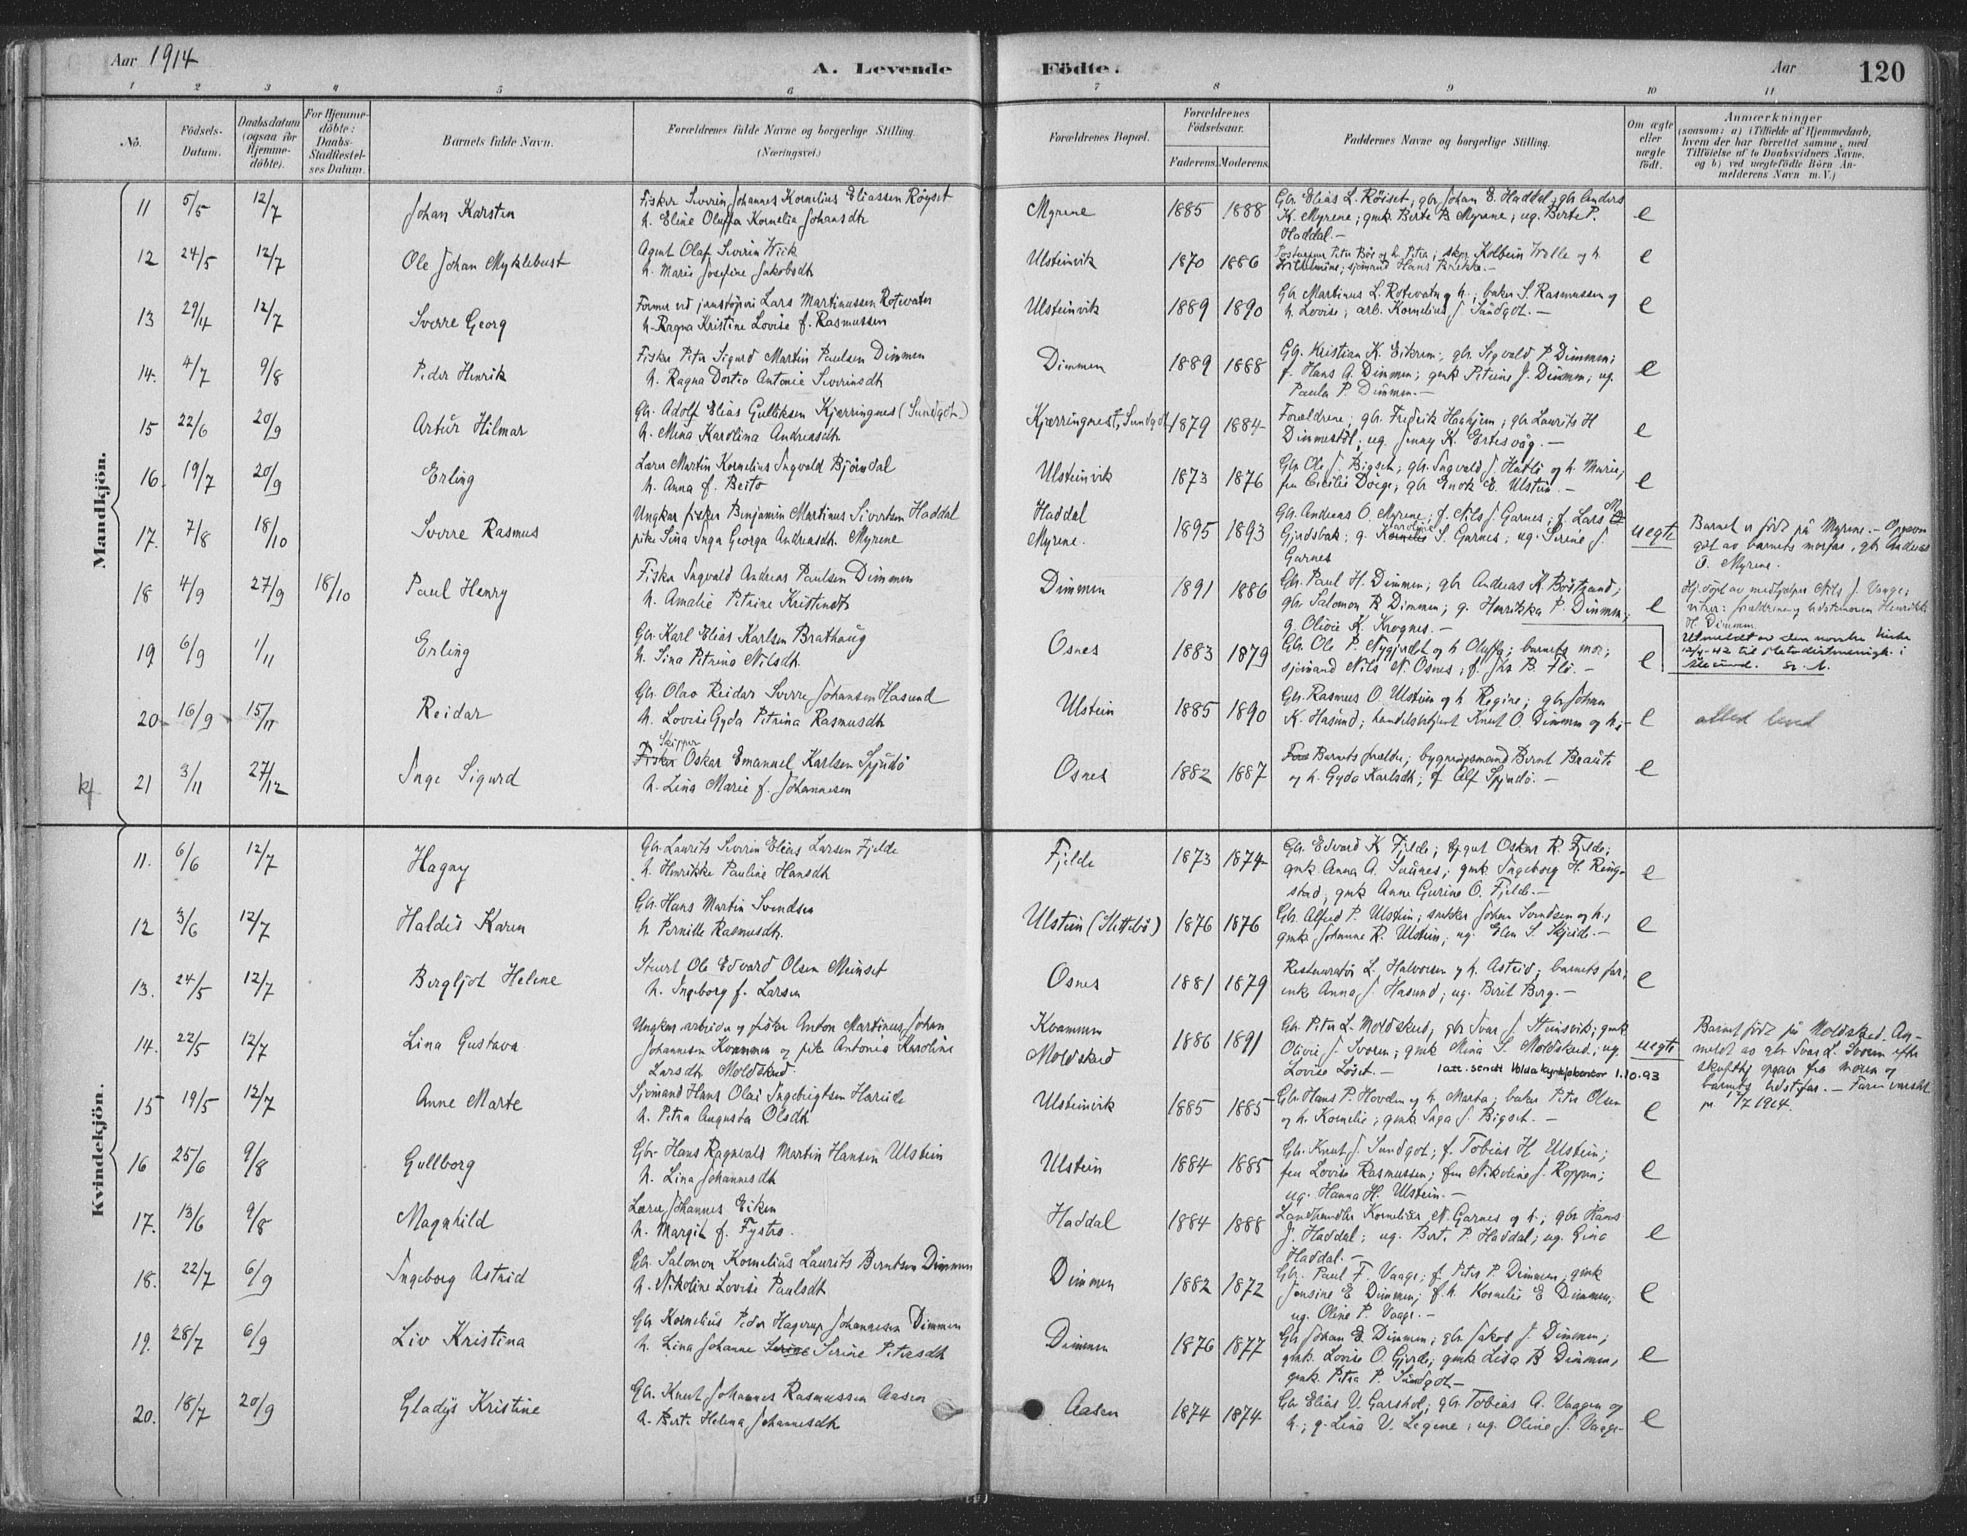 Aar 1914
A. Levende Födte.
Aar 120
1 2 3 4 5 6 7 8 9 10 11
No.
Födsels-Datum.
Daabsdatum (ogsaa for Hjemme-döbte).
For Hjemme-döbte: Daabs-Stadfæstel-ses Datum.
Barnets fulde Navn.
Forældrenes fulde Navne og borgerlige Stilling.
(Næringsvei.)
Forældrenes Bopæl.
Forældrenes Födselsaar.
Faderens. Moderens.
Faddernes Navne og borgerlige Stilling.
Om ægte eller uægte födt.
Anmærkninger
(saasom: a) i Tilfælde af Hjemmedaab,
hvem der har forrettet samme, med
Tilföielse af to Daabsvidners Navne,
og b) ved uægtefödte Börn An-
melderens Navn m. V.)
Mandkjön.
11 5/5 12/7 Johan Karsten
Fisker Severin Johannes Kornelius Eliassen Røyset
h. Eline Oluffa Kornelia Johansdtr
Myrene 1885 1888
Gbr Elias L. Røiset; gbr Johan E. Haddal; gbr Anders
K. Myrene; gmk Berte B. Myrene; ug. Berte P.
Haddal.— e
12 24/5 12/7 Ole Johan Myklebust
Agent Olaf Severin Wiik
h. Marie Josefine Jakobsdtr
Ulsteinvik 1870 1886
Peter Bøe og h. Petra; skpr Kolbein Welle og h.
Wilhelmine; sjømand Hans Brekke.— e
13 29/4 12/7 Sverre Georg
Former ved jernstøperi Lars Martinussen Rotevatn
h. Ragna Kristine Lovise f. Rasmussen
Ulsteinvik 1889 1890
Gbr Martinus L. Rotevatn og h.; baker S. Rasmussen og
h. Lovise; arb. Kornelius J. Sundgot.— e
14. 4/7 9/8 Peder Henrik
Fisker Peter Sigurd Martin Paulsen Dimmen
h. Ragna Dortea Antonie Severinsdtr
Dimmen 1889 1888
Gbr. Kristian K. Eikrem; gbr Sigvald P. Dimmen;
f. Hans A. Dimmen; gmk Petrine J. Dimmen; ug.
Paula P. Dimmen.— e
15 22/6 20/9 Artur Hilmar
Gbr. Adolf Elias Gulliksen Kjerringnes (Sundgot.)
h. Mina Karolina Andreasdtr
Kjærringnest, Sundgot 1879 1884
Forældrene; gbr. Fredrik Hashjem; gbr Laurits H
Dimmestøl; ug. Jenny K. Ertesvåg.— e
16. 19/7 20/9 Erling
Lærer Martin Kornelius Ingvald Bjørndal
h. Anna f. Beito
Ulsteinvik 1873 1876
Gbr. Ole J. Bigset; gbr. Ingvald J. Hatlø og h. Marie;
fru Cecilie Døge; gbr Enok E. Ulstein.— e
17. 7/8 18/10 Sverre Rasmus
Ungkar fisker Benjamin Martinus Sivertsen Haddal
pike Sina Inga Georga Andreasdtr. Myrene
Haddal
Myrene. 1895 1893
Gbr. Andreas O. Myrene; f. Nils J. Garnes; f. Lars
Gjerdsbak; g. Karoline S. Garnes; ug. Serine J.
Garnes uegte
Barnet er født på Myrene.— Opgave
gåt av barnets morfar, gbr Andreas
O. Myrene.
18 4/9 27/9 18/10 Paul Henry
Fisker Ingvald Andreas Paulsen Dimmen
h. Amalie Petrine Kristinsdtr
Dimmen 1891 1886
Gbr. Paul H. Dimmen; gbr Andreas K. Bøstrand;
gbr. Salomon B Dimmen; g. Henrikka P. Dimmen,
g. Olivie K. Krognes.— e
Hj. døpt av medhjelper Nils J. Vaage;
vitner: forældrene og bestemoren Henrikke
H Dimmen.
19 6/9 1/11 Erling
Gbr. Karl Elias Karlsen Brathaug
h. Sina Petrina Nilsdtr.
Osnes 1883 1879
Gbr. Ole P. Nygjerdet og h Oluffa; barnets mor;
sjømand Nils N. Osnes; f. Jhs B. Flø.— e
Utmeldt av den norske kirke
12/4-42 til Metodistmenigh. i
Ålesund. Sr. A.
20 16/9 15/11 Reidar
Gbr. Olav Reidar Sverre Johansen Hasund
h. Lovise Gyda Petrina Rasmusdtr
Ulstein 1885 1890
Gbr. Rasmus O. Ulstein og h Regine; gbr Johan
K. Hasund; handelsbetjent Knut O Dimmen og h;— e
kf 21 3/11 27/12 Inge Sigurd
Skipper
Fisker Oskar Emanuel Karlsen Spjudø
h. Lina Marie f. Johannesen
Osnes 1882 1887
Barnets forældre; bygningsmand Bernt Braute
og h. Gyda Karlsdtr; f. Alf Spjudø.— e
Kvindekjön.
11. 6/6 12/7 Hagny
Gbr. Laurits Severin Elias Larsen Fjelde
h. Henrikke Pauline Hansdtr
Fjelde 1873 1874
Gbr. Edvard K Fjelde; Oskar R. Fjelde;
gmk Anna A. Sunnes; gmk Ingeborg H. Ringe-
stad; gmk Anne Gurine O. Fjelde.— e
12 3/6 12/7 Haldis Karen
Gbr. Hans Martin Svendsen
h Pernille Rasmusdtr.
Ulstein (Slettebø) 1876 1876
Gbr. Alfred P. Ulstein; snekker Johan Svendsen og h.,
gmk Johanne R. Ulstein; ug. Elen S. Skjeide.— e
13. 24/5 12/7 Bergljot Helene
Stuert Ole Edvard Olsen Meinset
h. Ingeborg f. Larsen
Osnes 1881 1879
Restauratør L. Halvorsen og h. Astrid; barnets far;
enke Anna J. Hasund; ug. Berit Berg.— e
14. 22/5 12/7 Lina Gustava
Ungkar arbeider og fisker Anton Martinus Johan
Johannesen Kvammen og pike Antonia Karoline
Larsdtr Moldskred.
Kvammen
Moldskred 1886 1891
Gbr. Peter L. Moldskred; gbr Ivar J. Steinsvik; gmk
Olivie J. Svoren; gmk Mina S. Moldskred; ug.
Lovise Løset.— uegte
att. sendt Volda kyrkjekontor 1.10.93
Barnet født på Moldskred. An-
meldt av gbr Ivar L. Svoren efter
skriftlig opgave fra moren og
barnets bestefar.— Faren varslet
pr. 17/7 1914.
15 19/5 12/7 Anne Marte
Sjømand Hans Olai Ingebrigtsen Hareide
h. Petra Augusta Olsdtr.
Ulsteinvik 1885 1885
Gbr Hans P. Hovden og h. Marta; baker Peter Olsen
og h. Kornelie; gmk Inga J. Bigset.— e
16 25/6 9/8 Gullborg
Gbr Hans Ragnvald Martin Hansen Ulstein
h. Lina Johannesdtr
Ulstein 1884 1885
Gbr. Knut J. Sundgot; f. Tobias H Ulstein;
fru Lovise Rasmussen; frøken Nikoline J. Roppen;
ug. Hanna H. Ulstein.— e
17. 13/6 9/8 Magnhild
Lærer Johannes Eiken
h. Margit f. Fystro.
Haddal 1884 1888
Landhandler Kornelius N. Garnes og h.; gbr Hans
J. Haddal; ug. Berte P. Haddal; ug. Lina
Haddal.— e
18. 22/7 6/9 Ingeborg Astrid
Gbr. Salomon Kornelius Laurits Berntsen Dimmen
h. Nikoline Lovise Paulsdtr
Dimmen 1882 1872
Gbr. Paul F. Vaage; f. Peter P. Dimmen, gmk
Jensine E Dimmen; f.h. Kornelie E Dimmen;
ug. Oline P. Vaage.— e
19. 28/7 6/9 Liv Kristina
Gbr Kornelius Peder Hagerup Johannesen Dimmen
h. Lina Johanne Serine Petersdtr
Dimmen 1876 1877
Gbr Johan E. Dimmen; gbr Jakob J. Dimmen;
gmk. Lovise O. Gjerde; gmk Lisa B Dimmen,
gmk Petra P. Sundgot— e
20. 18/7 20/9 Gladys Kristine
Gbr. Knut Johannes Rasmussen Aasen
h. Berte Helena Johannesdtr
Aasen 1874 1874
Gbr Elias V. Garshol; gbr Tobias A. Vaagen og
h.; g. Lina V. Legene; ug. Oline J. Vaage— e